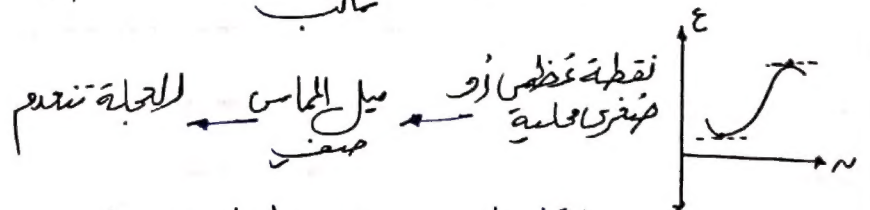 سالب
ع
نقطة عظمى أو صغرى محلية ← ميل المماس صفر ← العجلة تنعدم
ن